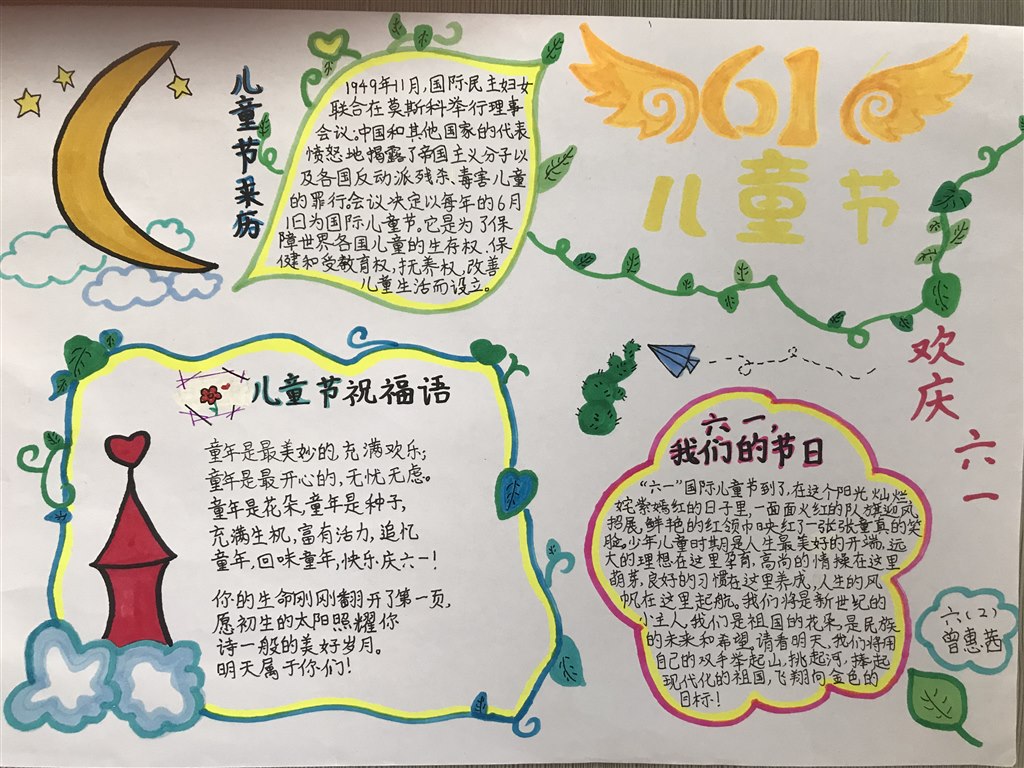 儿童节来历
1949年11月,国际民主妇女
联合在莫斯科举行理事
会议,中国和其他国家的代表
愤怒地揭露了帝国主义分子以
及各国反动派残杀、毒害儿童
的罪行。会议决定以每年的6月
1日为国际儿童节。它是为了保
障世界各国儿童的生存权、保
健和受教育权,抚养权,改善
儿童生活而设立。
61
儿童节
欢庆
六一
儿童节祝福语
童年是最美妙的,充满欢乐;
童年是最开心的,无忧无虑。
童年是花朵,童年是种子,
充满生机,富有活力,追忆
童年,回味童年,快乐庆六一!
你的生命刚刚翻开了第一页,
愿初生的太阳照耀你
诗一般的美好岁月。
明天属于你们!
六一,
我们的节日
“六一”国际儿童节到了,在这个阳光灿烂,
姹紫嫣红的日子里,一面面火红的队旗迎风
招展,鲜艳的红领巾映红了一张张童真的笑
脸。少年儿童时期是人生最美好的开端,远
大的理想在这里孕育,高尚的情操在这里
萌芽,良好的习惯在这里养成,人生的风
帆在这里起航。我们将是新世纪的
小主人,我们是祖国的花朵,是民族
的未来和希望。请看明天,我们将用
自己的双手举起山,挑起河,捧起
现代化的祖国,飞翔向金色的
目标!
六(2)
曾惠茜